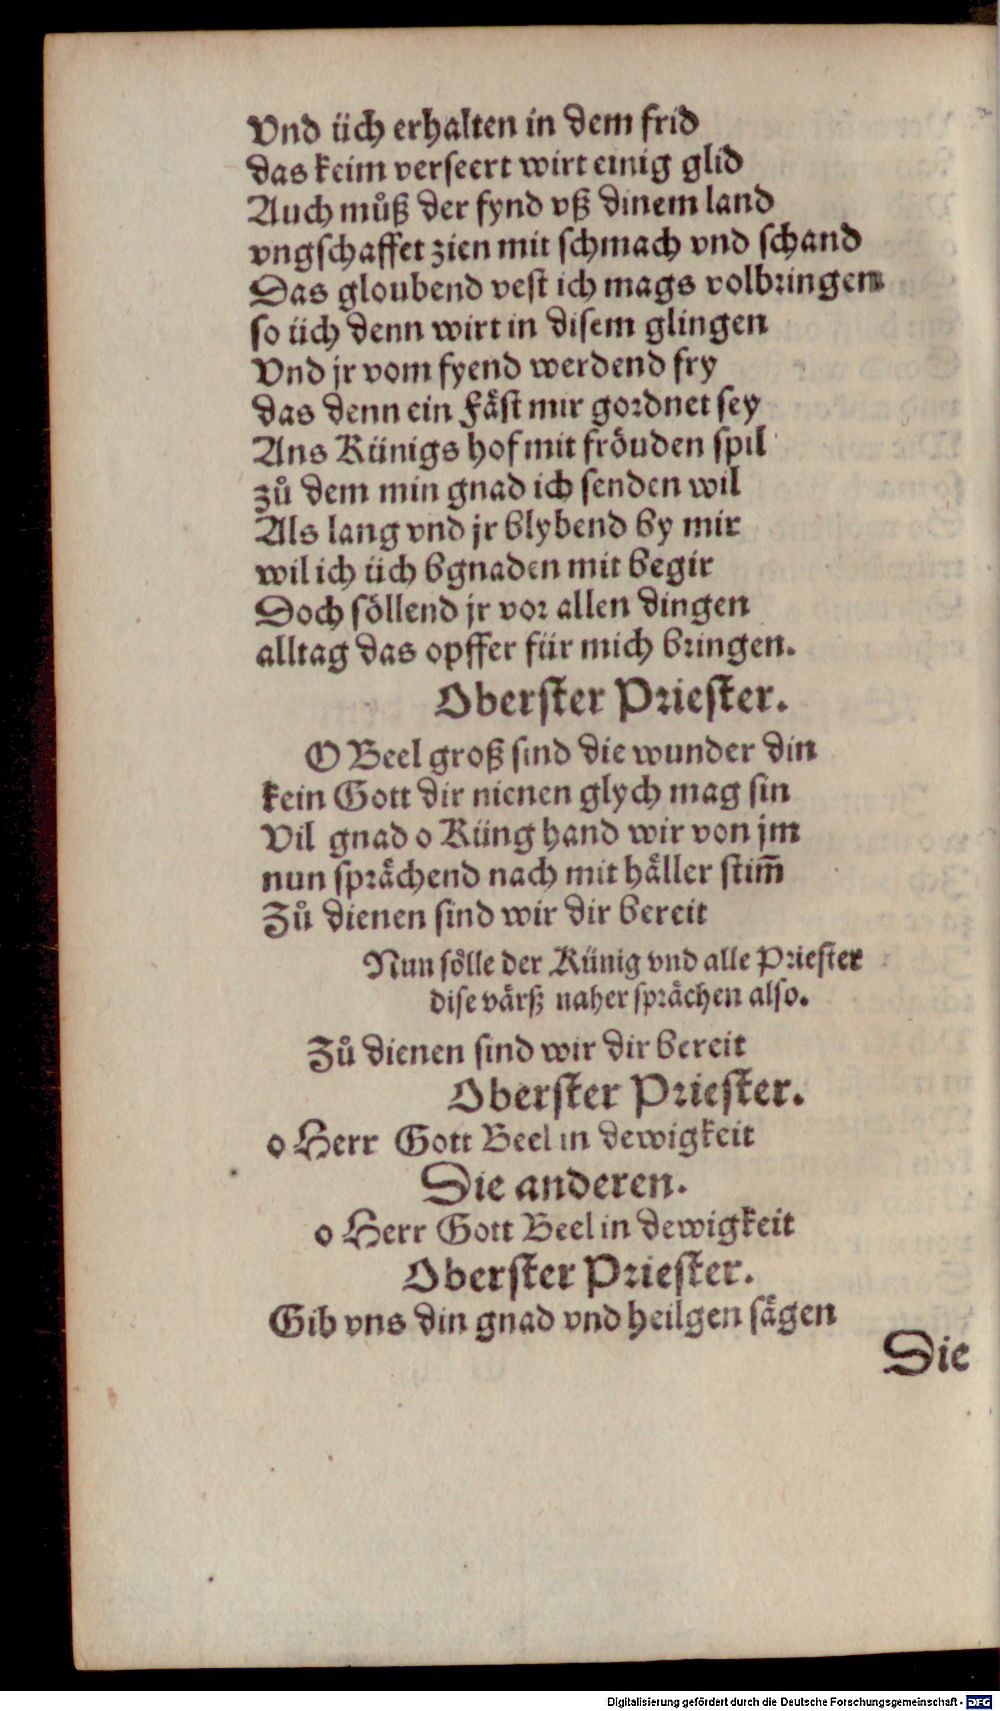 Vnd üch erhalten in dem frid
das keim verseert wirt einig glid
Auch můß der fynd vß dinem land
vngschaffet zien mit schmach vnd schand
Das gloubend vest ich mags volbringen
so üch denn wirt in disem glingen
Vnd jr vom fyend werdend fry
das denn ein Fäst mir gordnet sey
Ans Künigs hof mit fröuden spil
zů dem min gnad ich senden wil
Als lang vnd jr blybend by mir
wil ich üch bgnaden mit begir
Doch söllend jr vor allen dingen
alltag das opffer für mich bringen.
Oberster Priester.
O Beel groß sind die wunder din
kein Gott dir nienen glych mag sin
Vil gnad o Küng hand wir von jm
nun sprächend nach mit häller stim̄
Zů dienen sind wir dir bereit
Nun sölle der Künig vnd alle Priester
dise värß naher sprächen also.
Zů dienen sind wir dir bereit
Oberster Priester.
o Herr Gott Beel in dewigkeit
Die anderen.
o Herr Gott Beel in dewigkeit
Oberster Priester.
Gib vns din gnad vnd heilgen sägen
Die
Digitalisierung gefördert durch die Deutsche Forschungsgemeinschaft - DFG